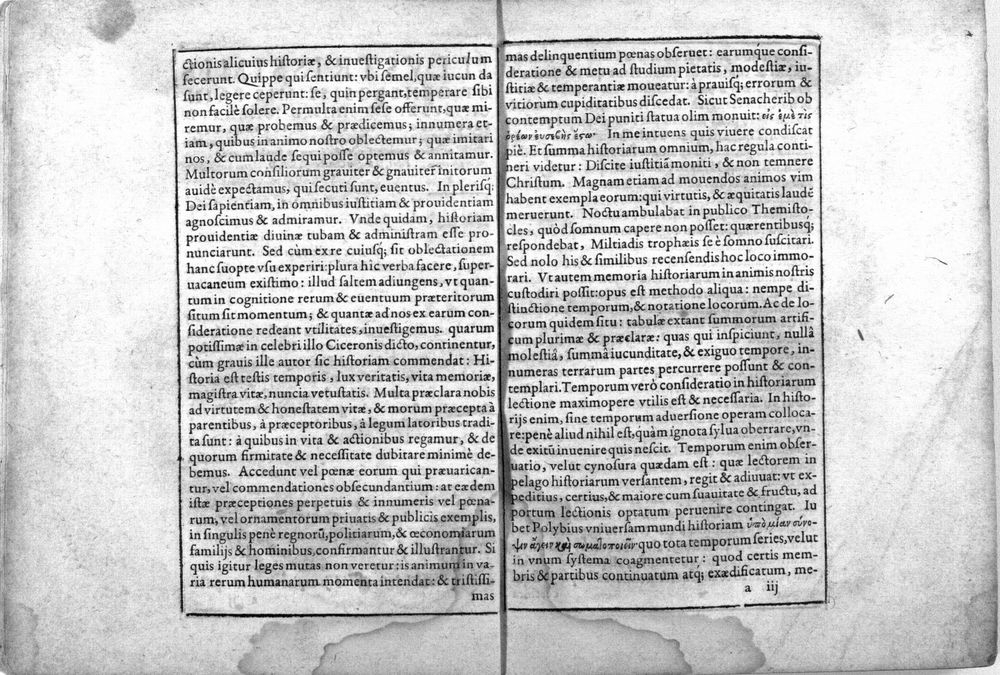 ctionis alicuius historiæ, & inuestigationis periculum
fecerunt. Quippe qui sentiunt: vbi semel, quæ iucun da
sunt, legere ceperunt: se, quin pergant, temperare sibi
non facilè solere. Permulta enim sese offerunt, quæ mi-
remur, quæ probemus & prædicemus; innumera et-
iam, quibus in animo nostro oblectemur; quæ imitari
nos, & cum laude sequi posse optemus & annitamur.
Multorum consiliorum grauiter & gnauiter initorum
auidè expectamus, qui secuti sunt, euentus. In plerisq;
Dei sapientiam, in omnibus iustitiam & prouidentiam
agnoscimus & admiramur. Vnde quidam, historiam
prouidentiæ diuinæ tubam & administram esse pro-
nunciarunt. Sed cùm ex re cuiusq; sit oblectationem
hanc suopte vsu experiri: plura hîc verba facere, super-
uacaneum existimo: illud saltem adiungens, vt quan-
tum in cognitione rerum & euentuum præteritorum
situm sit momentum; & quantæ ad nos ex earum con-
sideratione redeant vtilitates, inuestigemus. quarum
potissimæ in celebri illo Ciceronis dicto, continentur,
cùm grauis ille autor sic historiam commendat: Hi-
storia est testis temporis, lux veritatis, vita memoriæ,
magistra vitæ, nuncia vetustatis. Multa præclara nobis
ad virtutem & honestatem vitæ, & morum præcepta à
parentibus, à præceptoribus, à legum latoribus tradi-
ta sunt: à quibus in vita & actionibus regamur, & de
quorum firmitate & necessitate dubitare minimè de-
bemus. Accedunt vel pœnæ eorum qui præuarican-
tur, vel commendationes obsecundantium: at eædem
istæ præceptiones perpetuis & innumeris vel pœna-
rum, vel ornamentorum priuatis & publicis exemplis,
in singulis penè regnorũ, politiarum, & œconomiarum
familijs & hominibus, confirmantur & illustrantur. Si
quis igitur leges mutas non veretur: is animum in va-
ria rerum humanarum momenta intendat: & tristissi-
mas
mas delinquentium pœnas obseruet: earumq́ue consi-
deratione & metu ad studium pietatis, modestiæ, iu-
stitiæ & temperantiæ moueatur: à prauisq; errorum &
vitiorum cupiditatibus discedat. Sicut Senacherib ob
contemptum Dei puniti statua olim monuit: εἰς ἐμέ τις
ὁρέων εὐσεβὴς ἔσω· In me intuens quis viuere condiscat
piè. Et summa historiarum omnium, hac regula conti-
neri videtur: Discite iustitiã moniti, & non temnere
Christum. Magnam etiam ad mouendos animos vim
habent exempla eorum: qui virtutis, & æquitatis laudẽ
meruerunt. Noctu ambulabat in publico Themisto-
cles, quòd somnum capere non posset: quærentibusq́;
respondebat, Miltiadis trophæis se è somno suscitari.
Sed nolo his & similibus recensendis hoc loco immo-
rari. Vt autem memoria historiarum in animis nostris
custodiri possit: opus est methodo aliqua: nempe di-
stinctione temporum, & notatione locorum. Ac de lo-
corum quidem situ: tabulæ extant summorum artifi-
cum plurimæ & præclaræ: quas qui inspiciunt, nullâ
molestiâ, summâ iucunditate, & exiguo tempore, in-
numeras terrarum partes percurrere possunt & con-
templari. Temporum verò consideratio in historiarum
lectione maximopere vtilis est & necessaria. In histo-
rijs enim, sine temporum aduersione operam colloca-
re: penè aliud nihil est, quàm ignota sylua oberrare, vn-
de exitũ inuenire quis nescit. Temporum enim obser-
uatio, velut cynosura quædam est: quæ lectorem in
pelago historiarum versantem, regit & adiuuat: vt ex-
peditius, certius, & maiore cum suauitate & fructu, ad
portum lectionis optatum peruenire contingat. Iu
bet Polybius vniuersam mundi historiam ὑπὸ μίαν σύνο-
ψιν ἄγειν καὶ σωματοποιεῖν· quo tota temporum series, velut
in vnum systema coagmentetur: quod certis mem-
bris & partibus continuatum atq; exædificatum, me-
a iij